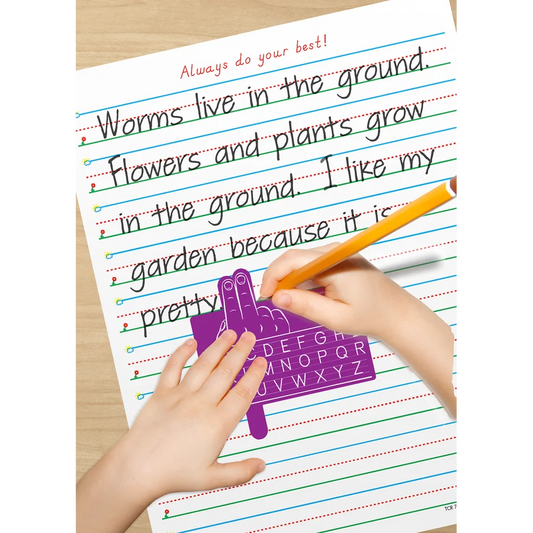 Always do your best!
Worms live in the ground.
Flowers and plants grow
in the ground. I like my
garden because it is
pretty
C D E F G H
M N O P Q R
U V W X Y Z
TCR 7